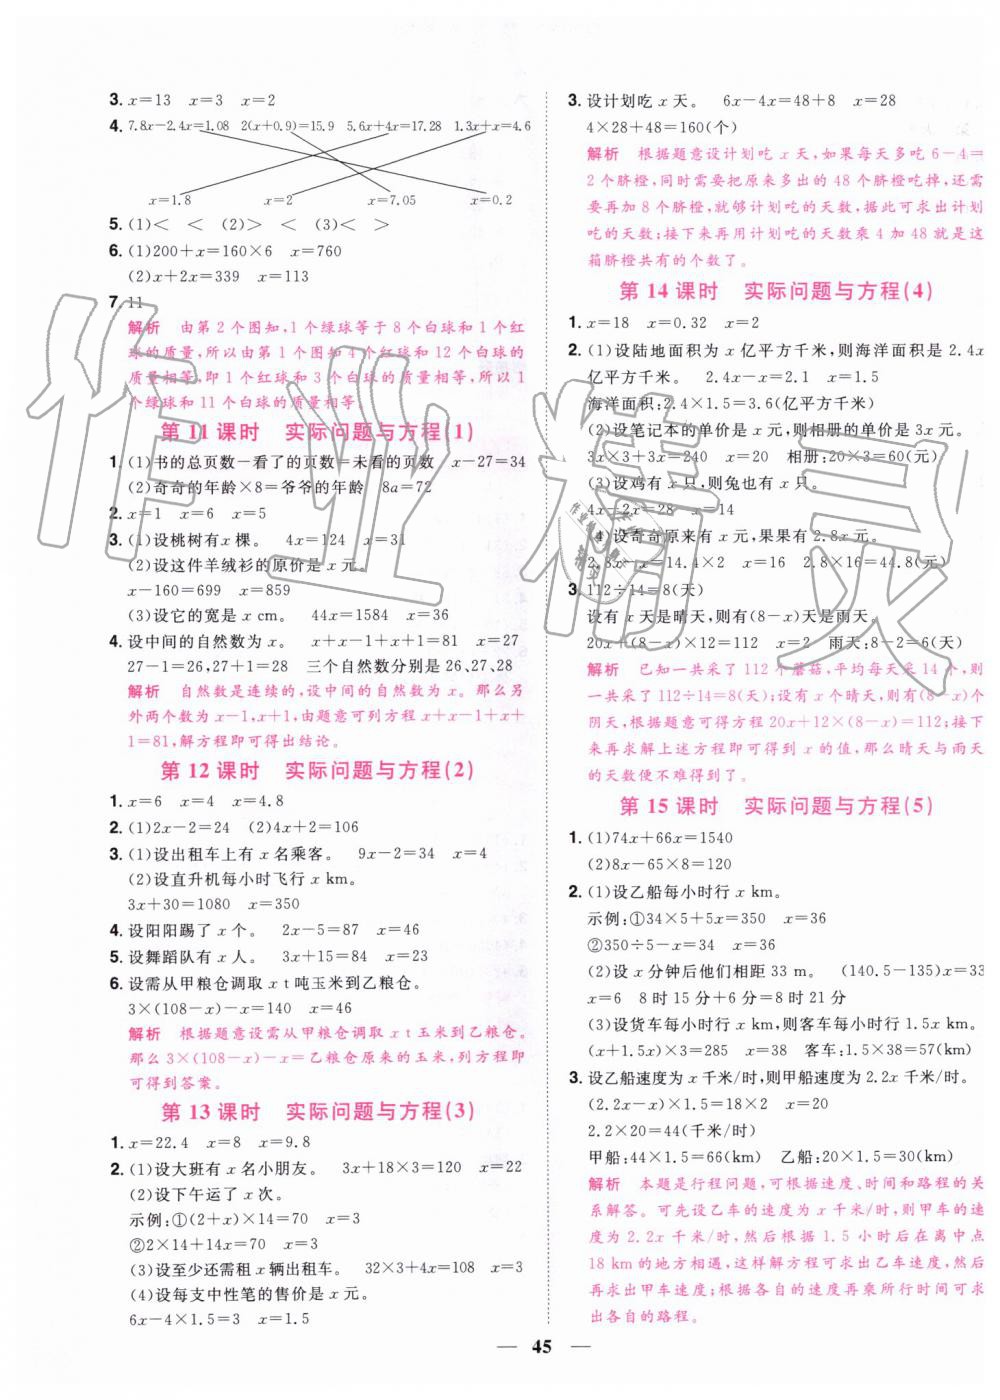 3. x=13　x=3　x=2
4. 7.8x－2.4x=1.08　2(x+0.9)=15.9　5.6x+4x=17.28　1.3x+x=4.6
x=1.8　x=2　x=7.05　x=0.2
5. (1)＜　＜　(2)＞　＜　(3)＜　＞
6. (1)200+x=160×6　x=760
(2)x+2x=339　x=113
7. 11
解析　由第 2 个图知,1 个绿球等于 8 个白球和 1 个红
球的质量,所以由第 1 个图知 4 个红球和 12 个白球的
质量相等,即 1 个红球和 3 个白球质量相等,所以,1
个绿球和 11 个白球的质量相等。
第 11 课时　实际问题与方程(1)
1. (1)书的总页数－看了的页数=未看的页数　x－27=34
(2)奇奇的年龄×8=爷爷的年龄　8a=72
2. x=1　x=6　x=5
3. (1)设桃树有 x 棵。　4x=124　x=31
(2)设这件羊绒衫的原价是 x 元。
x－160=699　x=859
(3)设它的宽是 x cm。　44x=1584　x=36
4. 设中间的自然数为 x。　x+x－1+x+1=81　x=27
27－1=26,27+1=28　三个自然数分别是 26、27、28
解析　自然数是连续的,设中间的自然数为 x。那么另
外两个数为 x－1,x+1,由题意可列方程 x+x－1+x+
1=81,解方程即可得出结论。
第 12 课时　实际问题与方程(2)
1. x=6　x=4　x=4.8
2. (1)2x－2=24　(2)4x+2=106
3. (1)设出租车上有 x 名乘客。　9x－2=34　x=4
(2)设直升机每小时飞行 x km。
3x+30=1080　x=350
4. 设阳阳踢了 x 个。　2x－5=87　x=46
5. 设舞蹈队有 x 人。　3x+15=84　x=23
6. 设需从甲粮仓调取 x t吨玉米到乙粮仓。
3×(108－x)－x=140　x=46
解析　根据题意设需从甲粮仓调取 x t 玉米到乙粮仓。
那么 3×(108－x)－x=乙粮仓原来的玉米,列方程即
可得到答案。
第 13 课时　实际问题与方程(3)
1. x=22.4　x=8　x=9.8
2. (1)设大班有 x 名小朋友。　3x+18×3=120　x=22
(2)设下午运了 x 次。
示例:①(2+x)×14=70　x=3
②2×14+14x=70　x=3
(3)设至少还需租 x 辆出租车。　32×3+4x=108　x=3
(4)设每支中性笔的售价是 x 元。
6x－4×1.5=3　x=1.5
3. 设计划吃 x 天。　6x－4x=48+8　x=28
4×28+48=160(个)
解析　根据题意设计划吃 x 天,如果每天多吃 6－4=
2 个脐橙,同时需要把原来多出的 48 个脐橙吃掉,还需
要再加 8 个脐橙,就够计划吃的天数,据此可求出计划
吃的天数;接下来再用计划吃的天数乘 4 加 48 就是这
箱脐橙共有的个数了。
第 14 课时　实际问题与方程(4)
1. x=18　x=0.32　x=2
2. (1)设陆地面积为 x 亿平方千米,则海洋面积是 2.4x
亿平方千米。　2.4x－x=2.1　x=1.5
海洋面积:2.4×1.5=3.6(亿平方千米)
(2)设笔记本的单价是 x 元,则相册的单价是 3x 元。
3x×3+3x=240　x=20　相册:20×3=60(元)
(3)设鸡有 x 只,则兔也有 x 只。
4x－2x=28　x=14
(4)设奇奇原来有 x 元,果果有 2.8x 元。
2.8x－x=14.4×2　x=16　2.8×16=44.8(元)
3. 112÷14=8(天)
设有 x 天是晴天,则有(8－x)天是雨天。
20x+(8－x)×12=112　x=2　雨天:8－2=6(天)
解析　已知一共采了 112 个蘑菇,平均每天采 14 个,则
一共采了 112÷14=8(天);设有 x 个晴天,则有(8－x)个
阴天,根据题意可得方程 20x+12×(8－x)=112;接下
来再求解上述方程即可得到 x 的值,那么晴天与雨天
的天数便不难得到了。
第 15 课时　实际问题与方程(5)
1. (1)74x+66x=1540
(2)8x－65×8=120
2. (1)设乙船每小时行 x km。
示例:①34×5+5x=350　x=36
②350÷5－x=34　x=36
(2)设 x 分钟后他们相距 33 m。　(140.5－135)x=33
x=6　8 时 15 分+6 分=8 时 21 分
(3)设货车每小时行 x km,则客车每小时行 1.5x km。
(x+1.5x)×3=285　x=38　客车:1.5×38=57(km)
3. 设乙船速度为 x 千米/时,则甲船速度为 2.2x千米/时。
(2.2x－x)×1.5=18×2　x=20
2.2×20=44(千米/时)
甲船:44×1.5=66(km)　乙船:20×1.5=30(km)
解析　本题是行程问题,可根据速度、时间和路程的关
系解答。可先设乙车的速度为 x 千米/时,则甲车的速
度为 2.2x 千米/时,然后根据 1.5 小时后在离中点
18 km 的地方相遇,这样解方程可求出乙车速度,然后
再求出甲车速度;根据各自的速度再乘所行时间可求
出各自的路程。
— 45 —
作业精灵